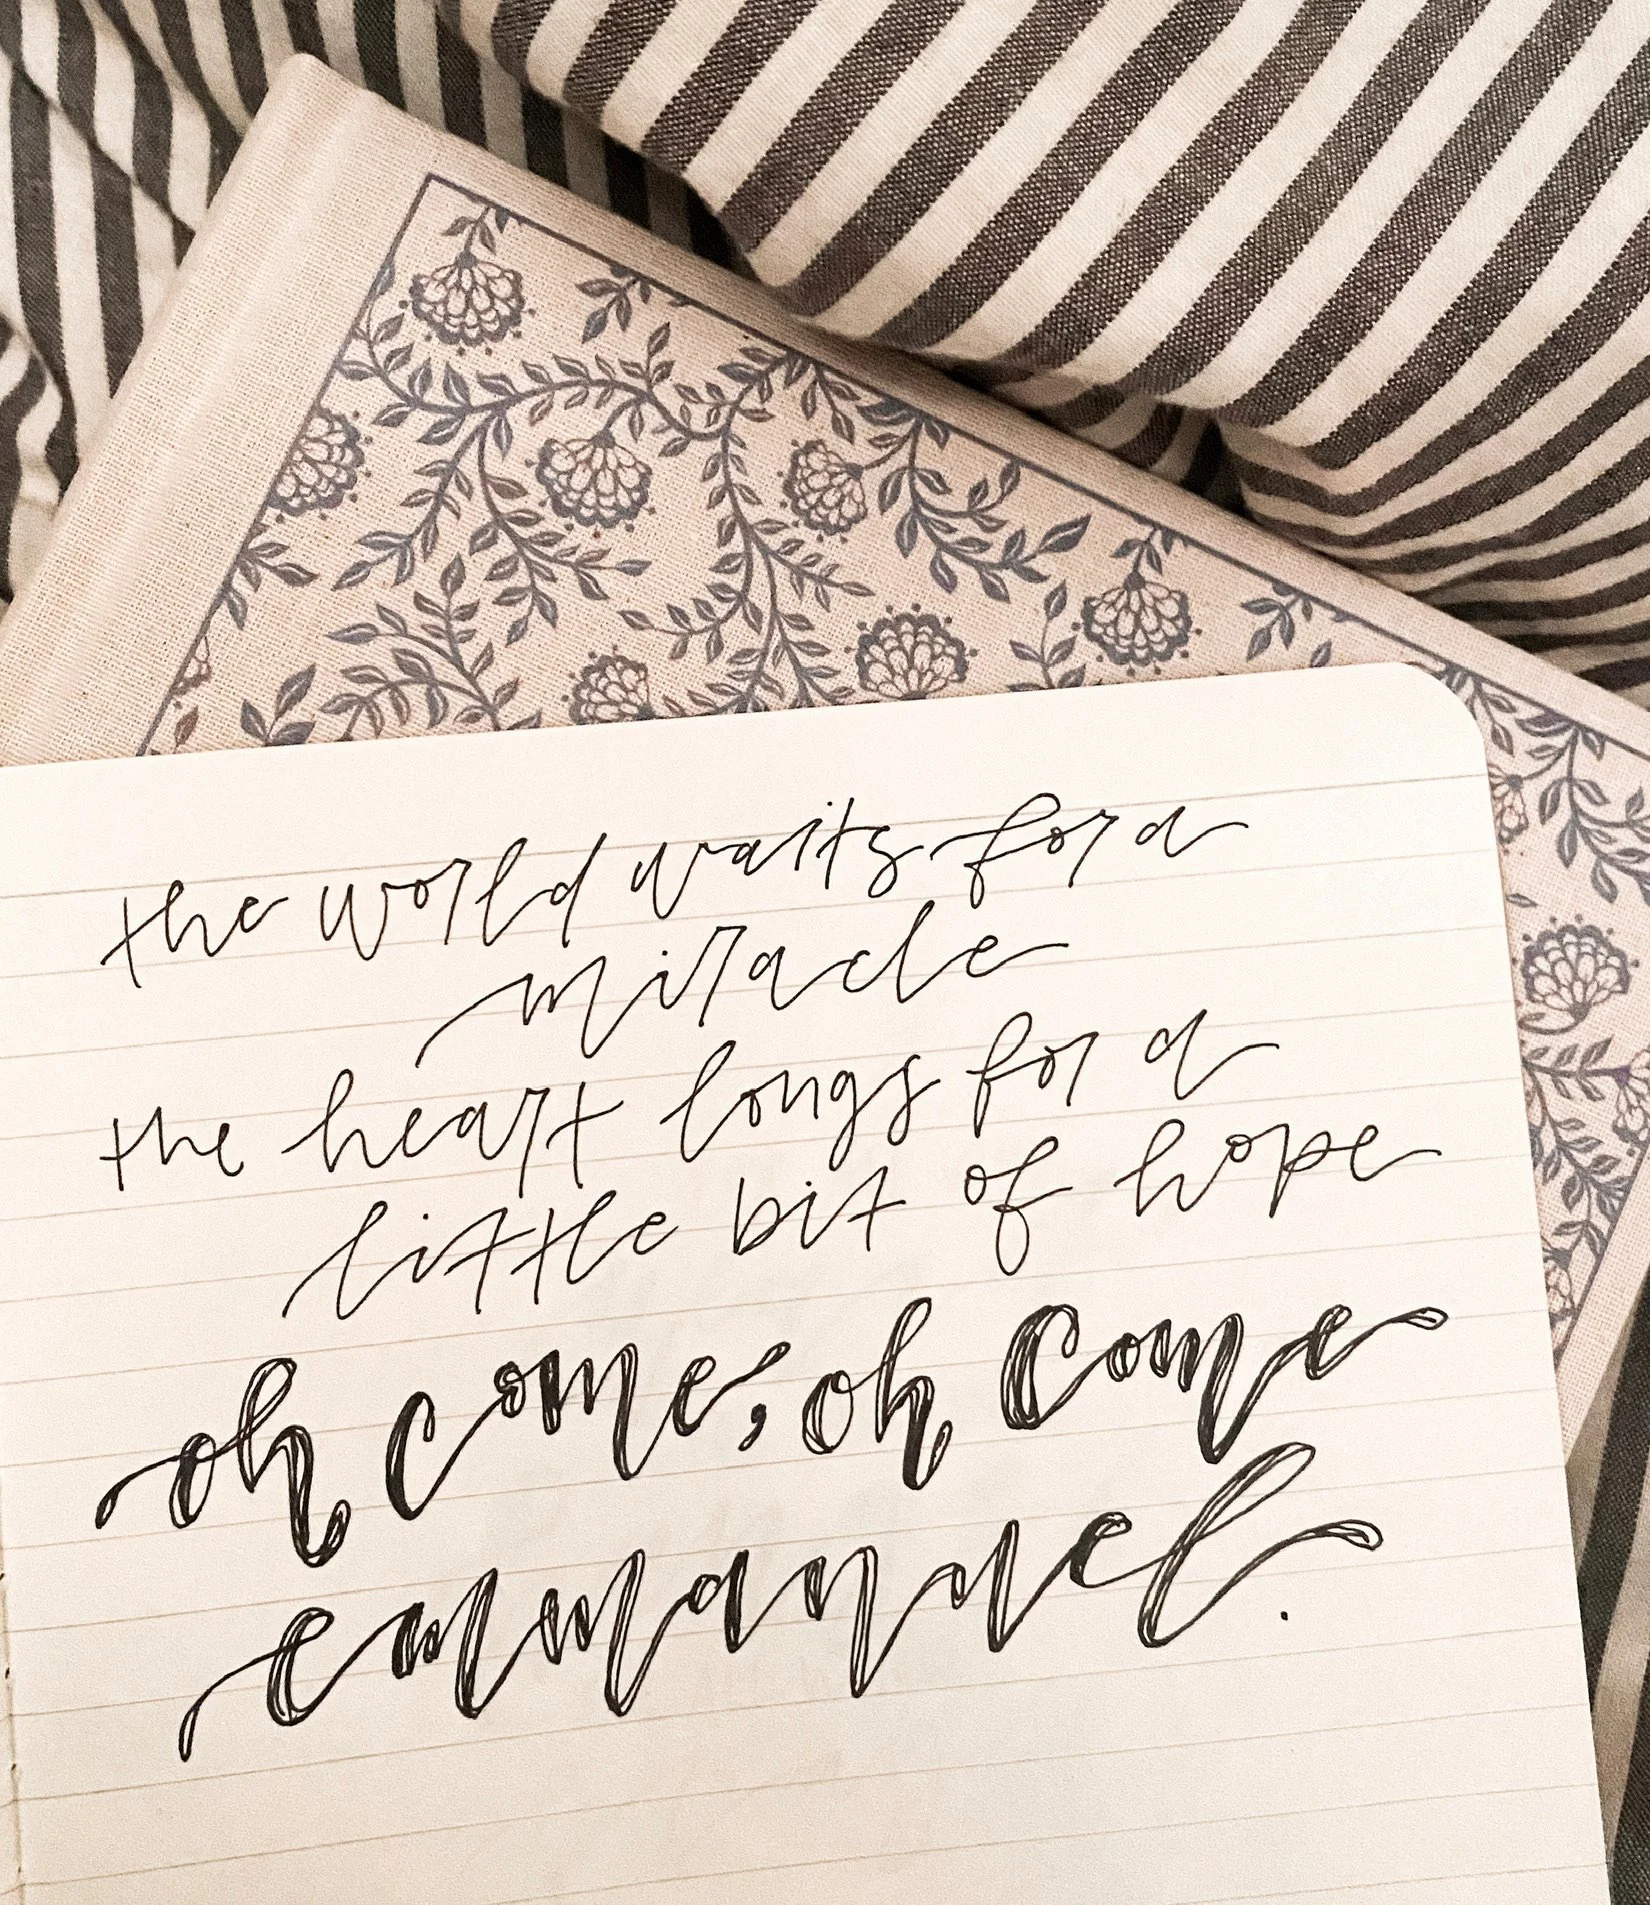 the world waits for a
miracle
the heart longs for a
little bit of hope
oh come, oh come
emmanuel.